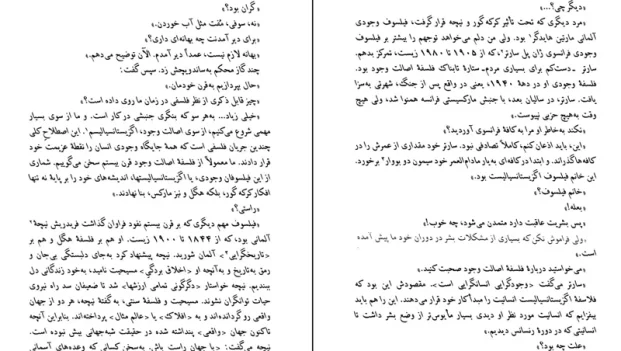 گران بود؟»
«نه، سوفی، مُفت مثل آب خوردن.»
«برای دیر آمدنت چه بهانه‌ای داری؟»
«بهانه لازم نیست، عمداً دیر آمدم. الآن توضیح می‌دهم.»
چند گاز محکم به ساندویچش زد. سپس گفت:
«حال پردازیم به قرن خودمان.»
«چیز قابل ذکری از نظر فلسفی در زمان ما روی داده است؟»
«خیلی زیاد... به هر سو که بنگری جنبشی در کار است. و ما از سوی بسیار
مهمی شروع می‌کنیم، از سوی اصالت وجود، اگزیستانسیالیسم¹. این اصطلاح کلی
چندین جریان فلسفی است که همهٔ جایگاه وجودی انسان را نقطهٔ عزیمت خود
قرار دادند. ما معمولاً از فلسفهٔ اصالت وجود قرن بیستم سخن می‌گوییم. شماری
از این فیلسوفان وجودی، یا اگزیستانسیالیستها، اندیشه‌های خود را بر پایهٔ نه تنها
افکار کرکه گور، بلکه هگل و نیز مارکس، بنا نهادند.»
«راستی؟»
«فیلسوف مهم دیگری که بر قرن بیستم نفوذ فراوان گذاشت فریدریش نیچهٔ²
آلمانی بود، که از ۱۸۴۴ تا ۱۹۰۰ زیست. او هم بر فلسفهٔ هگل و هم بر
«تاریخگرایی³» آلمان شورید. نیچه پیشنهاد کرد به‌جای دلبستگی بی‌جان و
رمق به تاریخ و به آنچه او «اخلاق بردگیِ» مسیحیت نامید، به خود زندگانی دل
ببندیم. نیچه خواستار «دگرگونی تمامی ارزشها» شد تا ضعیفان سد راه نیروی
حیات توانگران نشوند. مسیحیت و فلسفهٔ سنتی، به گفتهٔ نیچه، هر دو از جهان
واقعی رو گردانده‌اند و به «افلاک» یا «عالم مثال» پرداخته‌اند. بنابراین آنچه
تاکنون جهان «واقعی» پنداشته شده در حقیقت شبه‌جهانی بیش نبوده است.
نیچه می‌گفت: «با جهان راست باش. به سخن کسانی که وعده‌های آسمانی
«دیگر چی؟...»
«مرد دیگری که تحت تأثیر کرکه گور و نیچه قرار گرفت، فیلسوف وجودی
آلمانی مارتین هایدگر¹ بود. ولی من دلم می‌خواهد توجهم را بیشتر بر فیلسوف
وجودی فرانسوی ژان پل سارتر²، که از ۱۹۰۵ تا ۱۹۸۰ زیست، تمرکز بدهم.
سارتر ـ دست‌کم برای بسیاری مردم ـ ستارهٔ تابناک فلسفهٔ اصالت وجود بود.
فلسفهٔ وجودی او در دههٔ ۱۹۴۰، یعنی در واقع پس از جنگ، شهرتی به‌سزا
یافت. سارتر، در سالیان بعد، با جنبش مارکسیستی فرانسه همنوا شد، ولی هیچ
وقت به هیچ حزبی نپیوست.»
«نکند به خاطر او مرا به کافهٔ فرانسوی آوردید؟»
«این، باید اذعان کنم، کاملاً تصادفی نبود. سارتر خود مقداری از عمرش را در
کافه‌ها گذراند. و ابتدا در کافه‌ای به یار مادام‌العمر خود سیمون دو بووار³ برخورد.
این خانم فیلسوف اگزیستانسیالیست بود.»
«خانم فیلسوف؟»
«بعله!»
«پس بشریت عاقبت دارد متمدن می‌شود، چه خوب!»
«ولی فراموش نکن که بسیاری از مشکلات بشر در دوران خود ما پیش آمده
است.»
«می‌خواستید دربارهٔ فلسفهٔ اصالت وجود صحبت کنید.»
«سارتر می‌گفت «وجودگرایی انسانگرایی است». مقصودش این بود که
فلاسفهٔ اگزیستانسیالیست انسانیت را مبدأ کار خود قرار می‌دهند. این را هم باید
بیفزایم که انسانیت مورد نظر او دیدی بسیار مأیوس‌تر از وضع بشر داشت تا
انسانیتی که در دورهٔ رنسانس دیدیم.»
«علت چه بود؟»